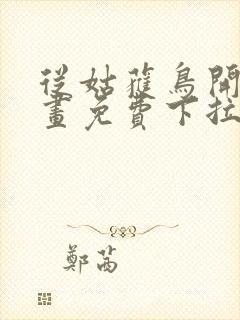 從姑獲鳥開
畫免費下拉
鄭茜